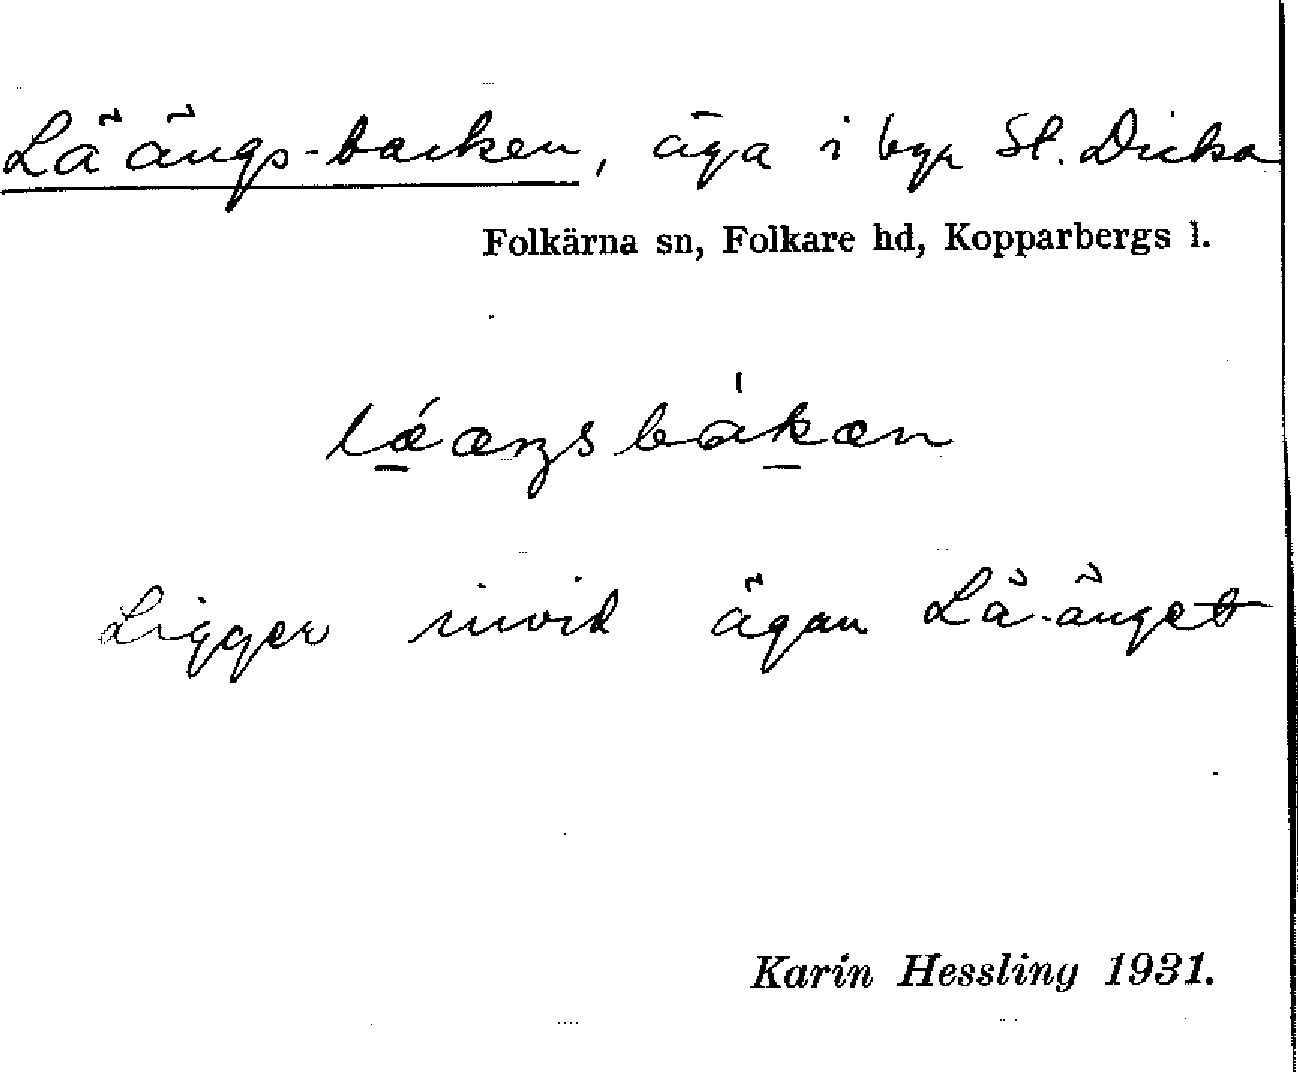 Läängs-backen, äga i byn St. Dicka
Folkärna sn, Folkare hd, Kopparbergs l.
Ligger invid ägan Lä-änget
Karin Hessling 1931.